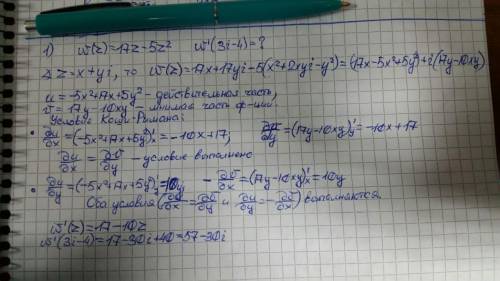 1) w(z)=17z-5z² w'(3i-4)=?
Δ z=x+yi, то w(z)=17x+17yi-5(x²+2xyi-y²)=(17x-5x²+5y²)+i(17y-10xy)
u=-5x²+17x+5y² - действительная часть,
v=17y-10xy - мнимая часть ф-ции.
Условие Коши-Римана:
• ∂u/∂x=(-5x²+17x+5y²)'x=-10x+17; ∂v/∂y=(17y-10xy)'y=-10x+17
∂u/∂x=∂v/∂y - условие выполнено
• ∂u/∂y=(-5x²+17x+5y²)'y=10y -∂v/∂x=-(17y-10xy)'x=10y
Оба условия (∂u/∂x=∂v/∂y и ∂u/∂y=-∂v/∂x) выполняются.
w'(z)=17-10z
w'(3i-4)=17-30i+40=57-30i